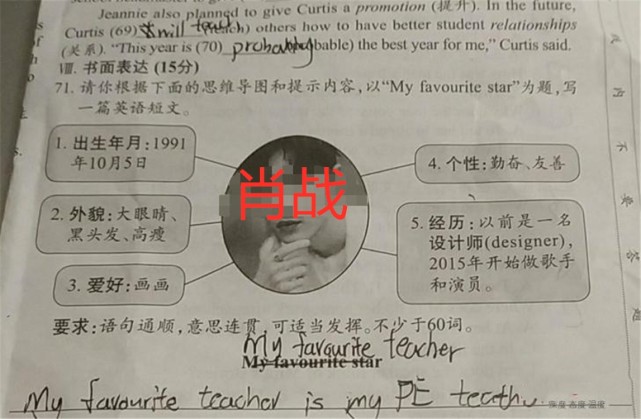 Jeannie also planned to give Curtis a promotion (提升). In the future,
Curtis (69) others how to have better student relationships
(关系). "This year is (70) probably the best year for me," Curtis said.
Ⅷ. 书面表达 (15分)
71. 请你根据下面的思维导图和提示内容,以"My favourite star"为题,写
一篇英语短文。
1. 出生年月:1991
年10月5日
2. 外貌:大眼睛、
黑头发、高瘦
3. 爱好:画画
肖战
4. 个性:勤奋、友善
5. 经历:以前是一名
设计师(designer),
2015年开始做歌手
和演员。
要求:语句通顺,意思连贯,可适当发挥。不少于60词。
My favourite teacher
My favourite star
My favourite teacher is my PE
内
不
要
答
题